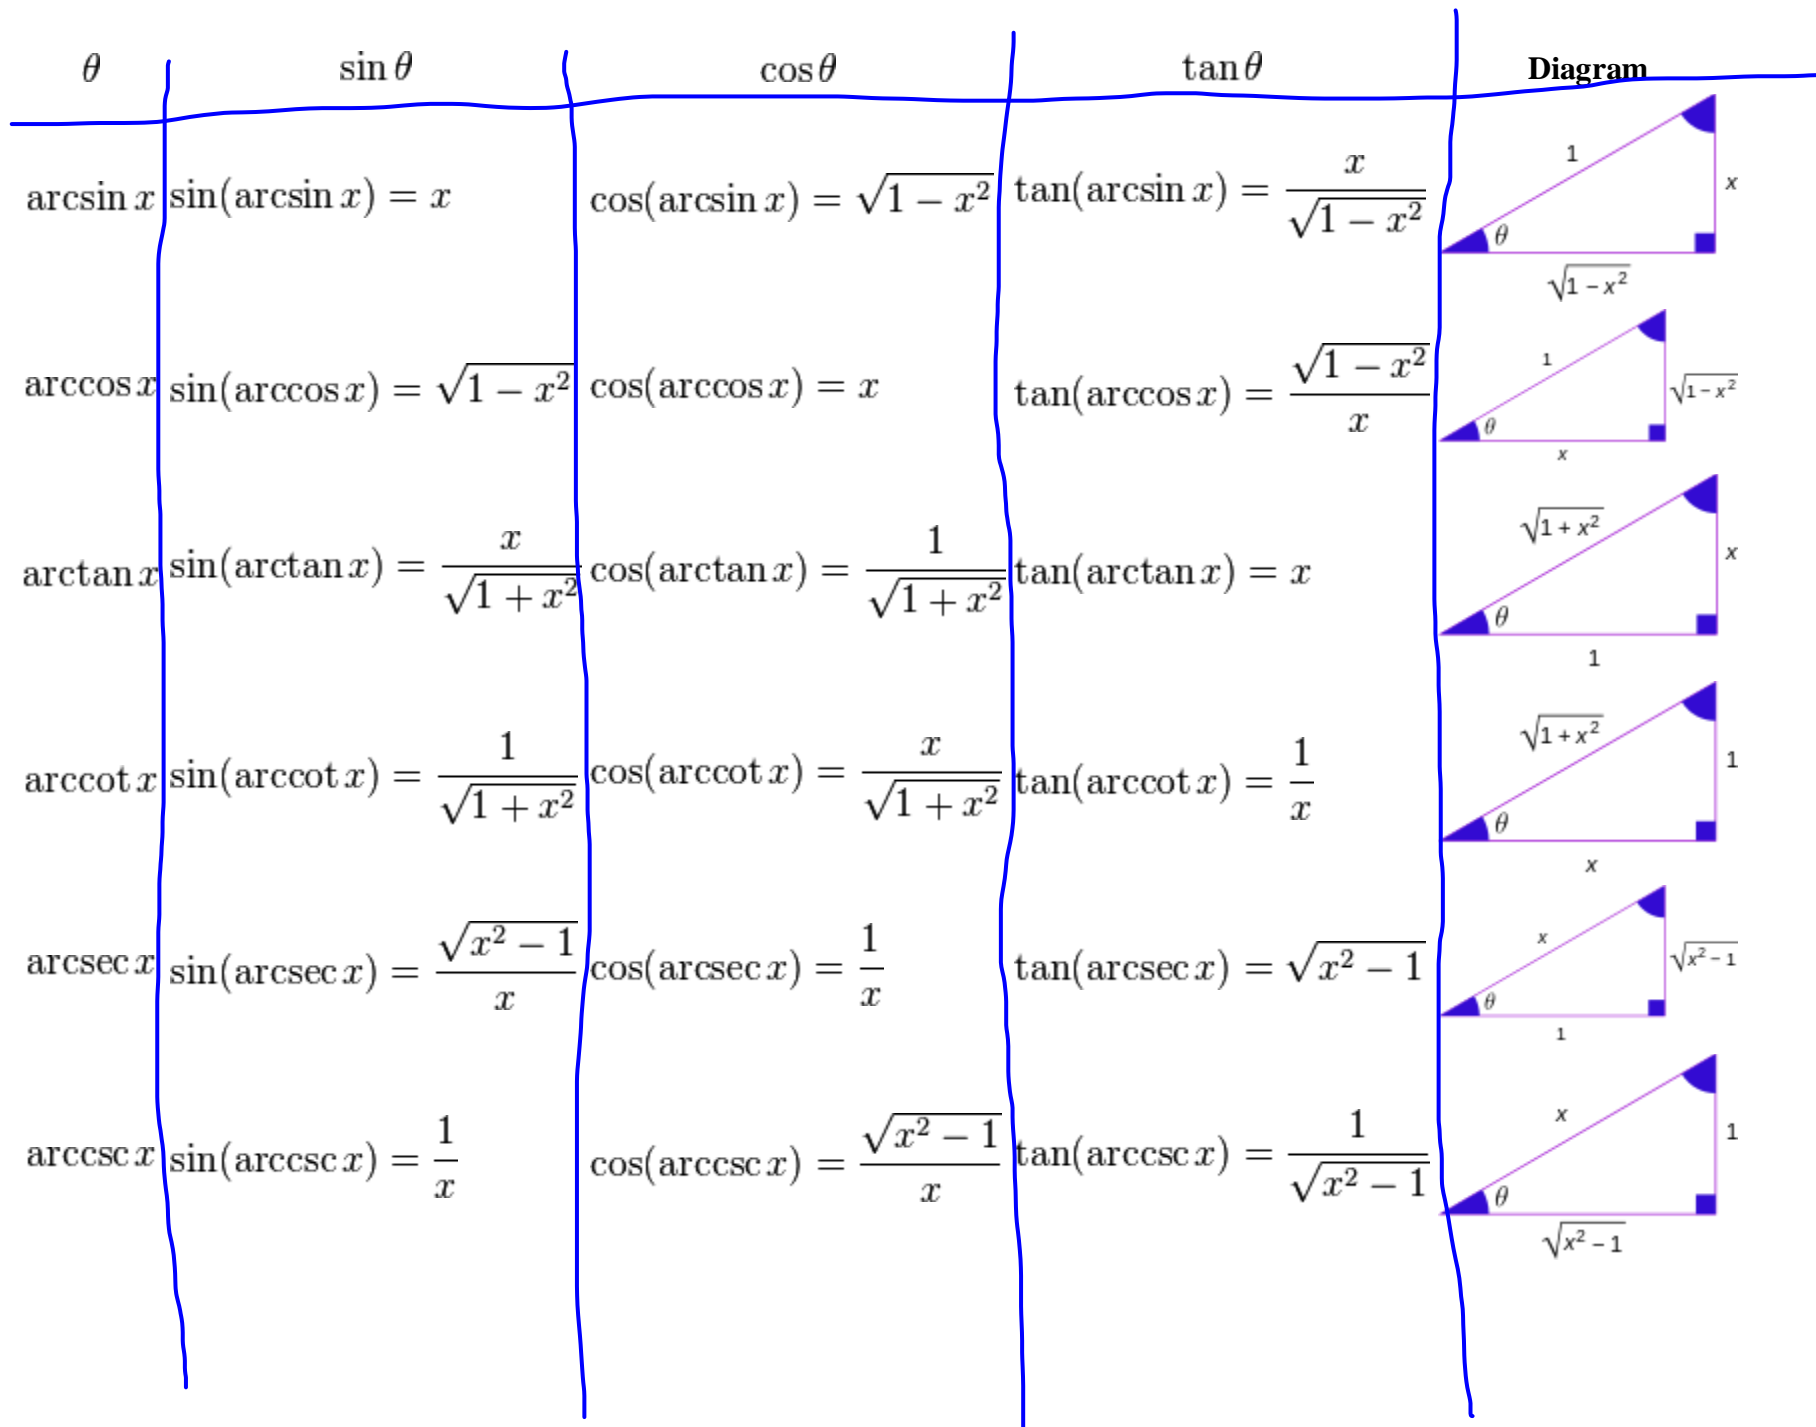 θ sin θ cos θ tan θ Diagram
arcsin x sin(arcsin x) = x cos(arcsin x) = √(1 − x²) tan(arcsin x) = x/√(1 − x²) 1 x θ √(1 − x²)
arccos x sin(arccos x) = √(1 − x²) cos(arccos x) = x tan(arccos x) = √(1 − x²)/x 1 √(1 − x²) θ x
arctan x sin(arctan x) = x/√(1 + x²) cos(arctan x) = 1/√(1 + x²) tan(arctan x) = x √(1 + x²) x θ 1
arccot x sin(arccot x) = 1/√(1 + x²) cos(arccot x) = x/√(1 + x²) tan(arccot x) = 1/x √(1 + x²) 1 θ x
arcsec x sin(arcsec x) = √(x² − 1)/x cos(arcsec x) = 1/x tan(arcsec x) = √(x² − 1) x √(x² − 1) θ 1
arccsc x sin(arccsc x) = 1/x cos(arccsc x) = √(x² − 1)/x tan(arccsc x) = 1/√(x² − 1) x 1 θ √(x² − 1)